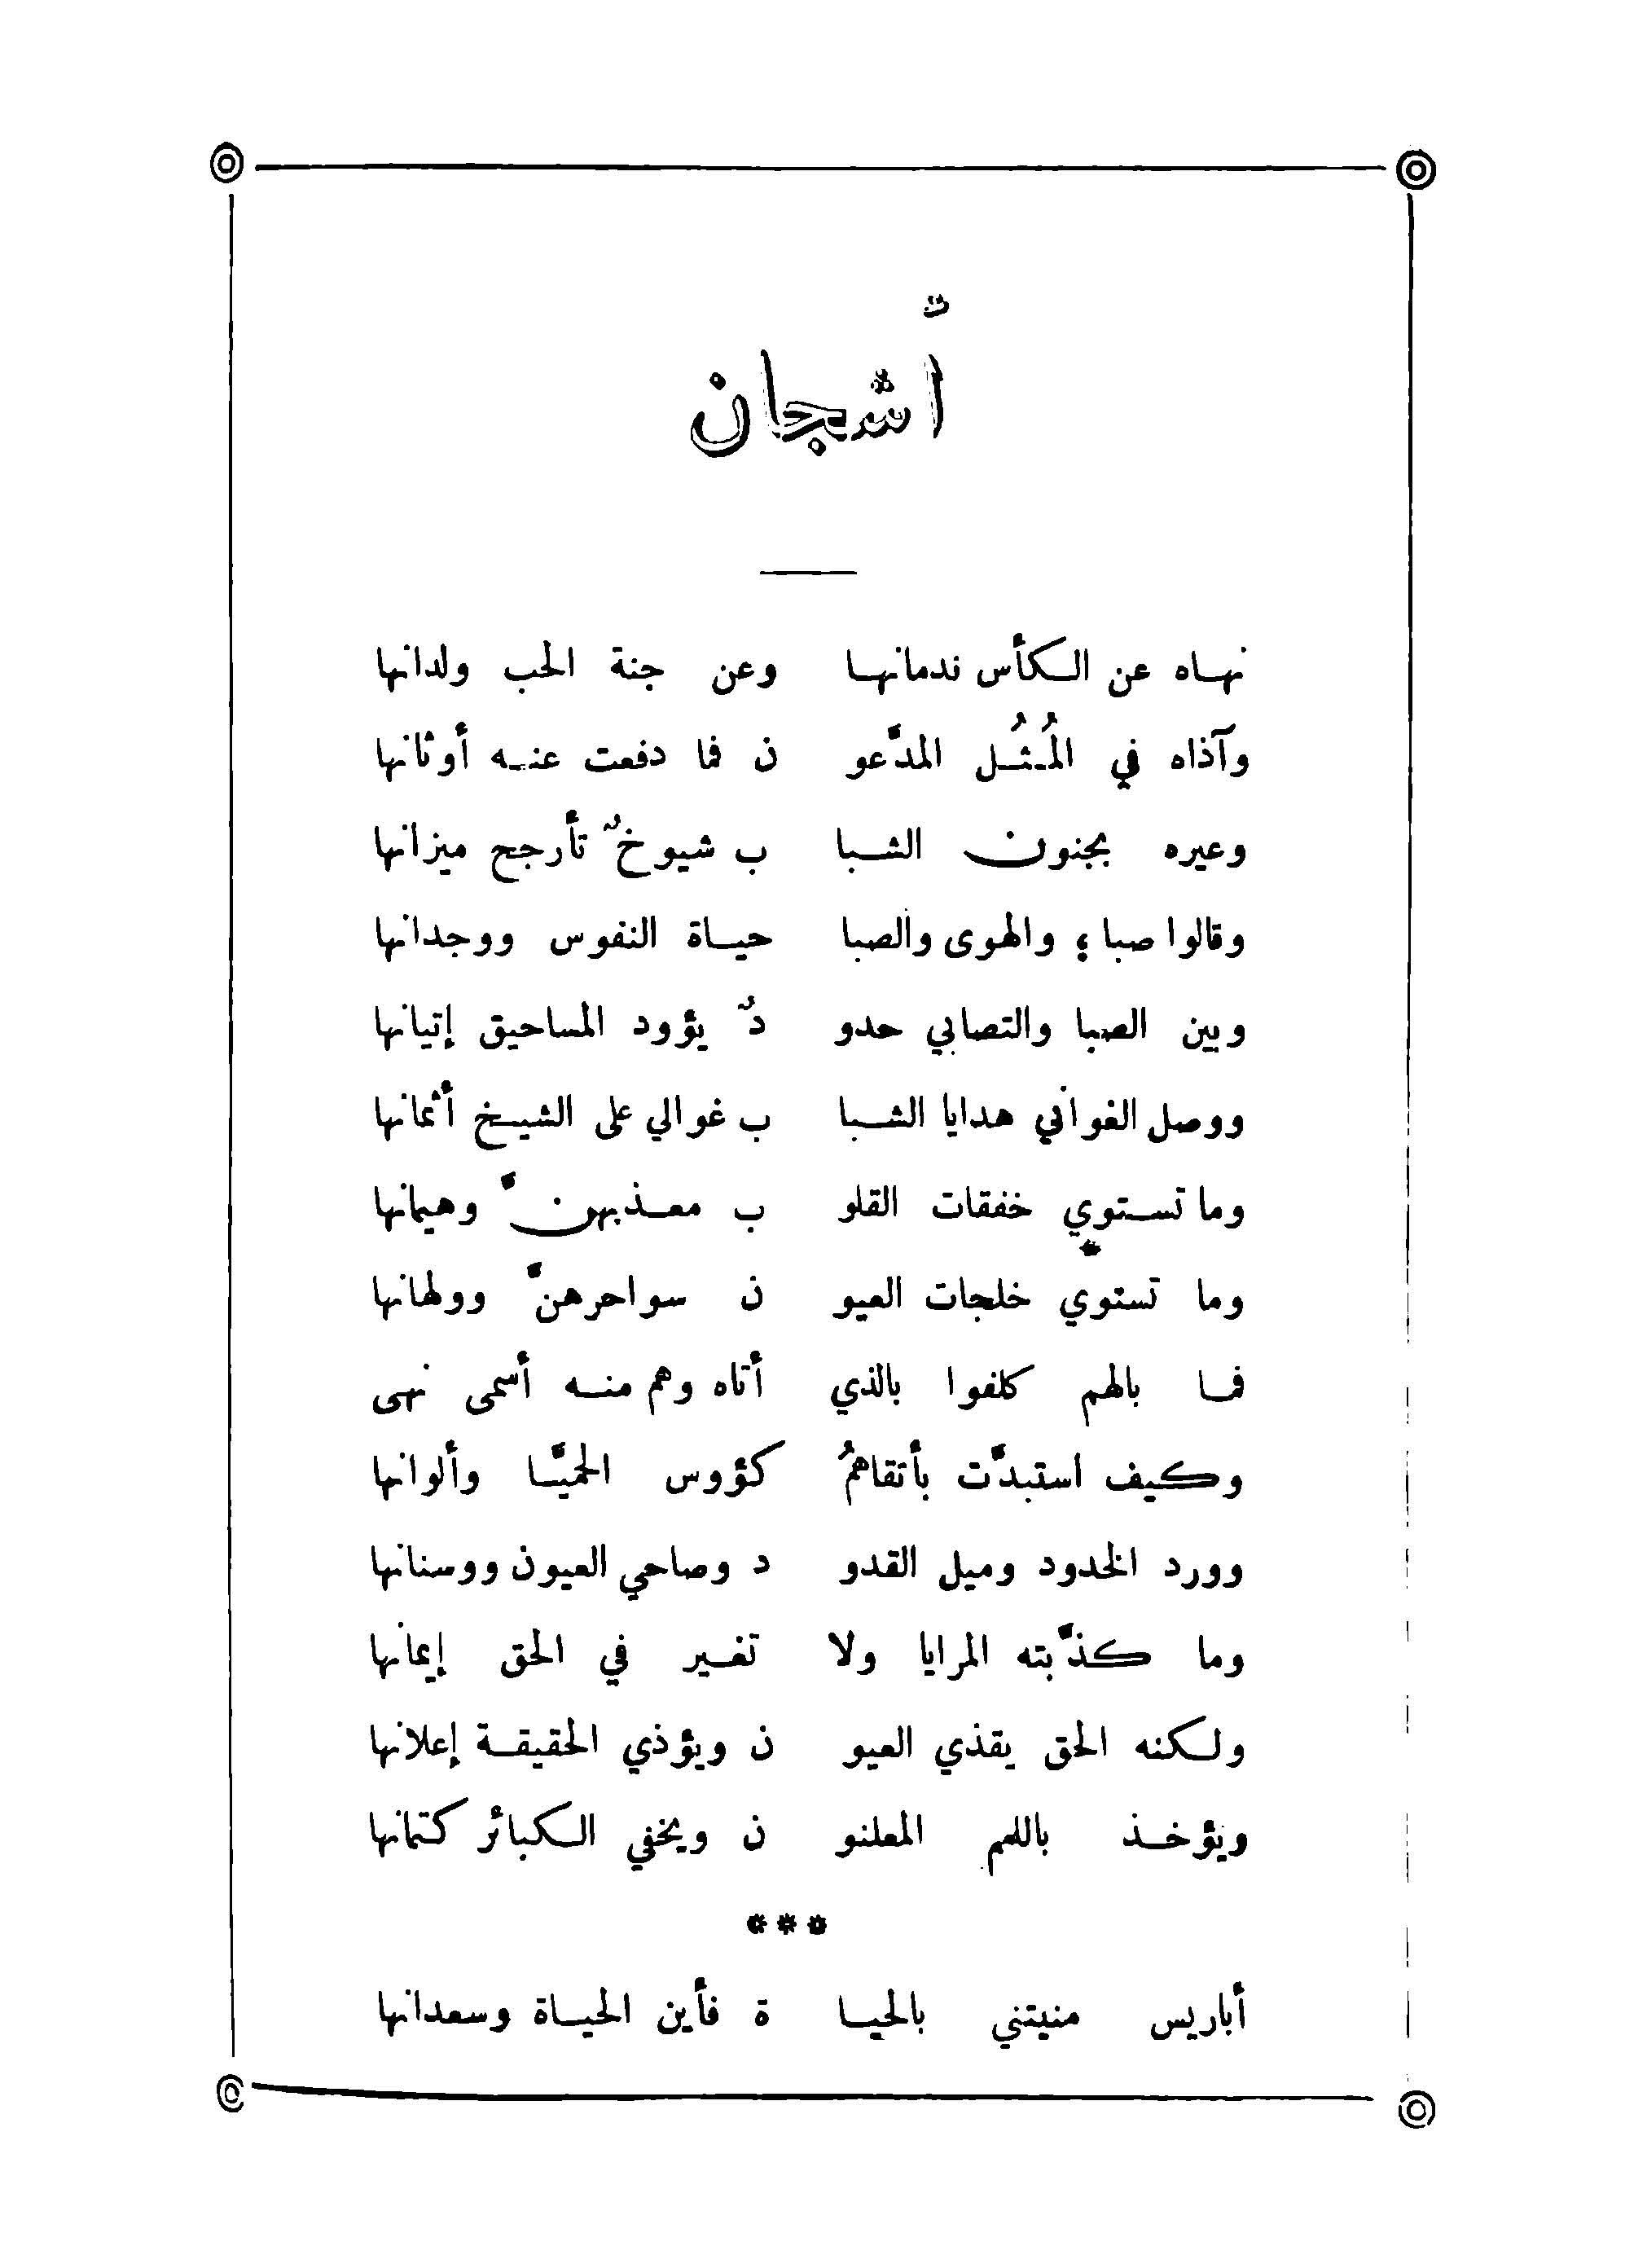 أشجان
نهاه عن الكأس ندمانها وعن جنة الحب ولدانها
وآذاه في المُثُل المدَّعو ن فما دفعت عنه أوثانها
وعيره بجنون الشبا ب شيوخٌ تأرجح ميزانها
وقالوا صبا ؛ والهوى والصبا حياة النفوس ووجدانها
وبين الصبا والتصابي حدو دٌ يؤود المساحيق إتيانها
ووصل الغواني هدايا الشبا ب غوالي على الشيخ أثمانها
وما تستوي خفقات القلو ب معذبهنَّ وهيمانها
وما تستوي خلجات العيو ن سواحرهنَّ وولهانها
فما بالهم كلفوا بالذي أتاه وهم منه أسمى نهى
وكيف استبدَّت بأتقاهمُ كؤوس الحميَّا وألوانها
وورد الخدود وميل القدو د وصاحي العيون ووسنانها
وما كذَّبته المرايا ولا تغير في الحق إيمانها
ولكنه الحق يقذي العيو ن ويؤذي الحقيقة إعلانها
ويؤخذ باللمم المعلنو ن ويخفي الكبائر كتمانها
***
أباريس منيتني بالحيا ة فأين الحياة وسعدانها